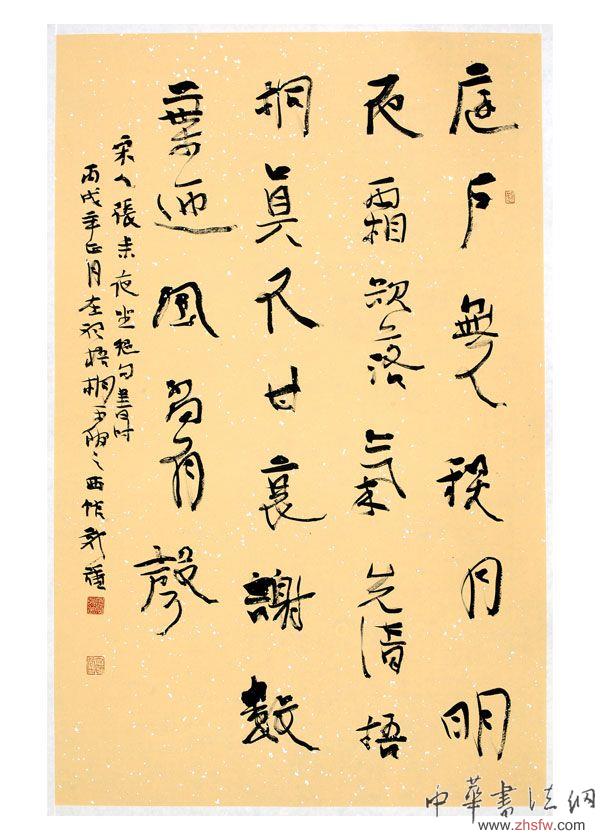 庭戶無人秋月明
夜霜欲落氣先清梧
桐真不甘衰謝數
葉迎風尚有聲
宋人張耒夜坐絕句時
丙戌年正月在梧桐之西
中華書法網
www.zhsfw.com